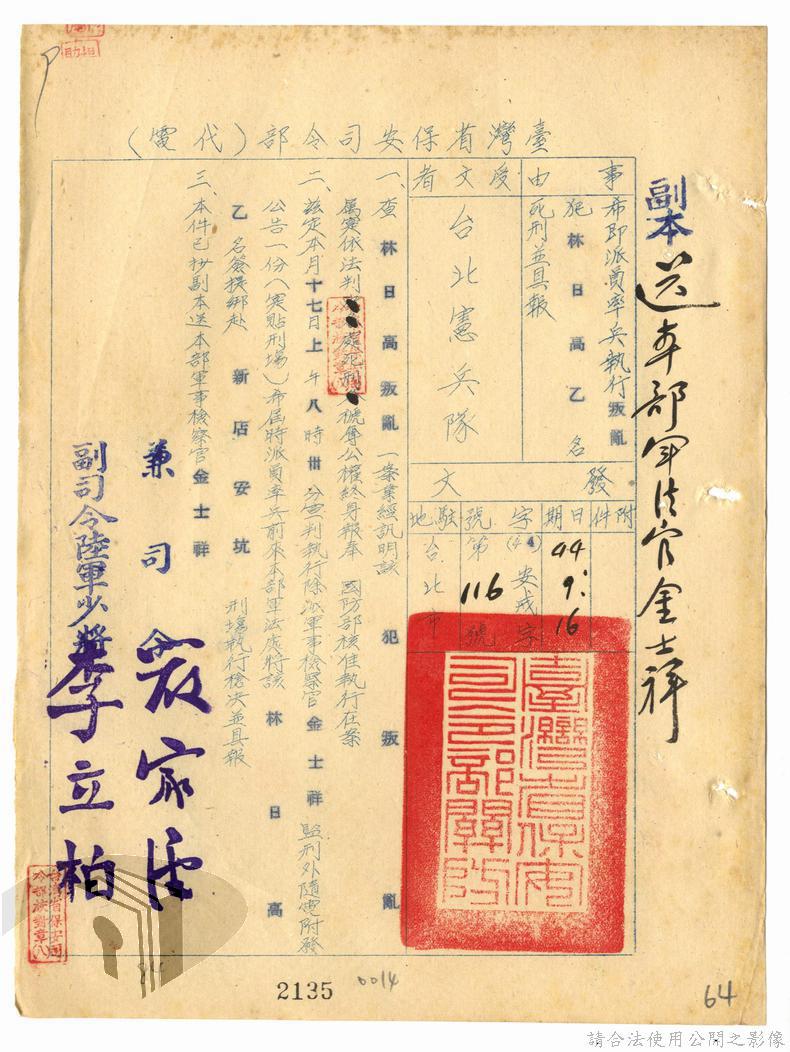 副本
送本部軍法官金士祥
臺灣省保安司令部（代電）
事由
希即派員率兵執行叛亂
犯林日高乙名
死刑並具報
受文者
台北憲兵隊
發文
附件
日期
44
9:
16
字
(44)安戒字
號
第116號
駐地
台北市
一、查林日高叛亂一案業經訊明該犯叛亂
屬實依法判處死刑褫奪公權終身報奉 國防部核准執行在案
二、茲定本月十七日上午八時卅分宣判執行除派軍事檢察官金士祥監刑外隨電附發
公告一份（實貼刑場）希屆時派員率兵前來本部軍法處將該林日高
乙名簽提綁赴新店安坑刑場執行槍決並具報
三、本件已抄副本送本部軍事檢察官金士祥
兼司令
副司令陸軍少將李立柏
臺灣省保安司令部關防
2135
0014
64
請合法使用公開之影像